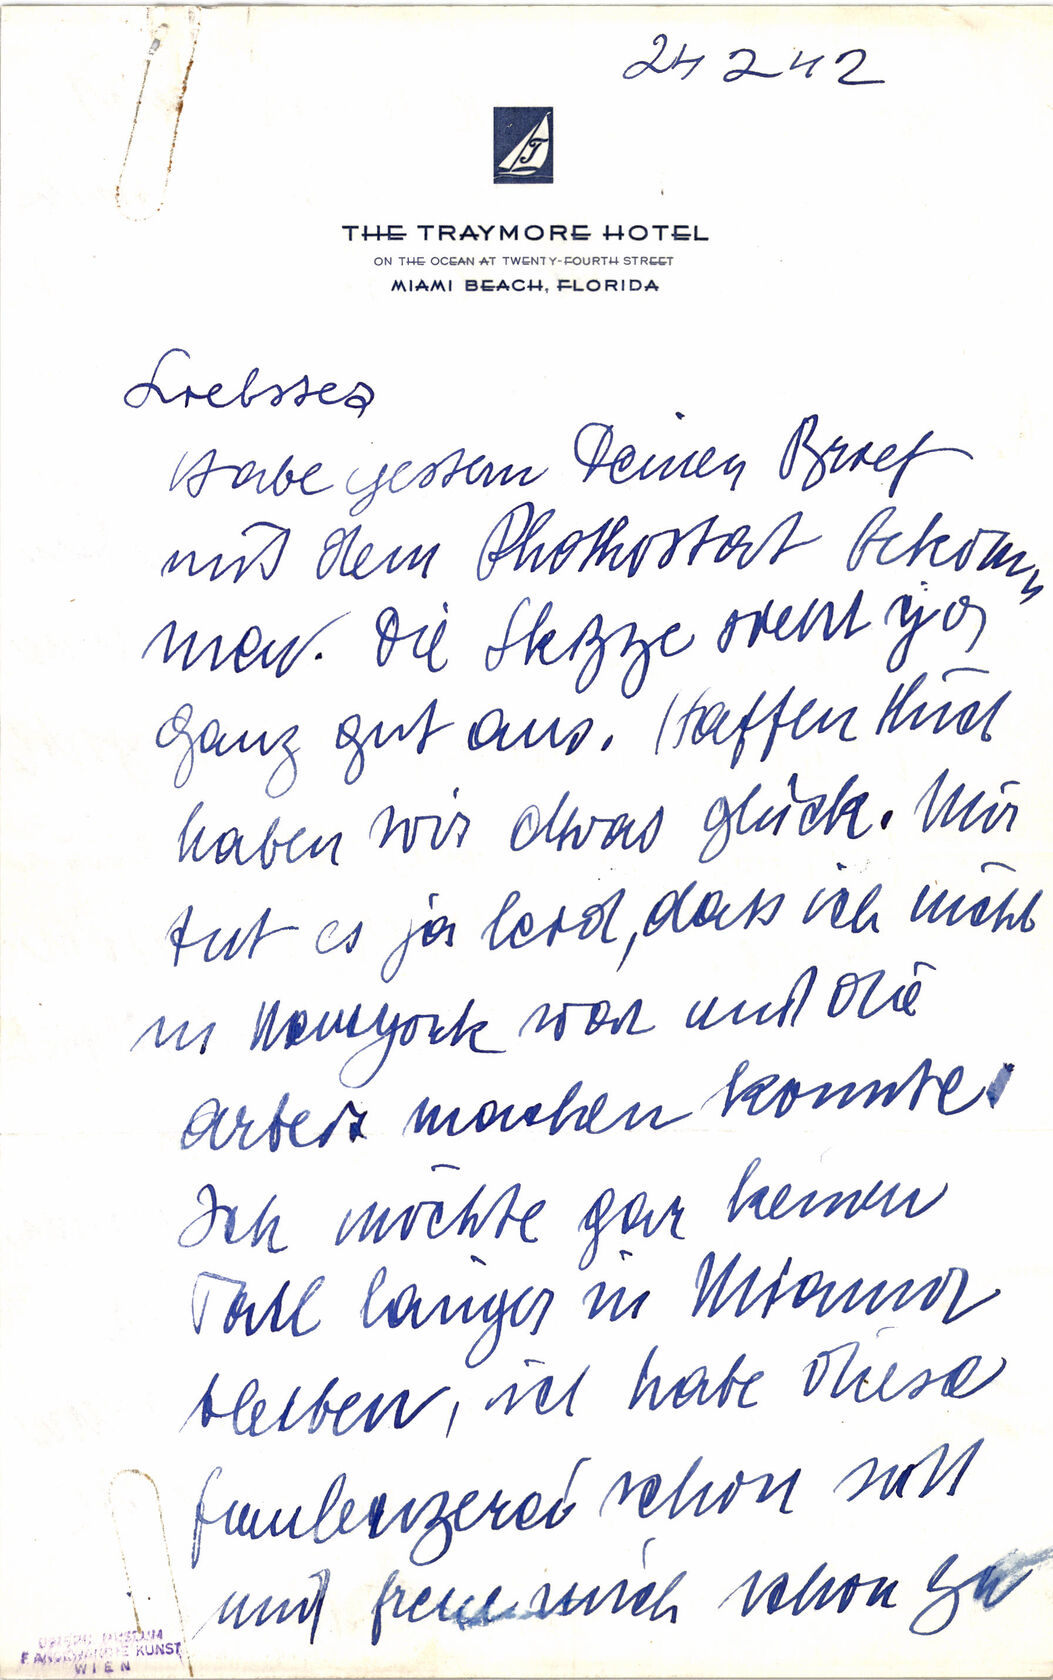 24 2 42
THE TRAYMORE HOTEL
ON THE OCEAN AT TWENTY-FOURTH STREET
MIAMI BEACH, FLORIDA
Liebster
Habe gestern Deinen Brief
mit dem Phothostat bekom-
men. Die Skizze sieht ja
ganz gut aus. Hoffentlich
haben wir etwas glück. Mir
tut es ja leid, dass ich nicht
in Newyork war und die
arbeit machen konnte.
Ich möchte gar keinen
Fall länger in Miami
bleiben, ich habe diese
faulenzerei schon satt
und freue mich schon
MUSEUM
F. ANGEWANDTE KUNST
WIEN